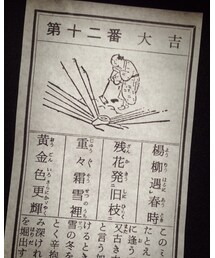 第十二番 大吉
楊柳遇春時
残花発旧枝
重々霜雪裡
黄金色更輝
このミ
たとえ
に逢う
又古き
と言う如
けると
雪の冬を
とく辛抱
み深けれ
を堀出す